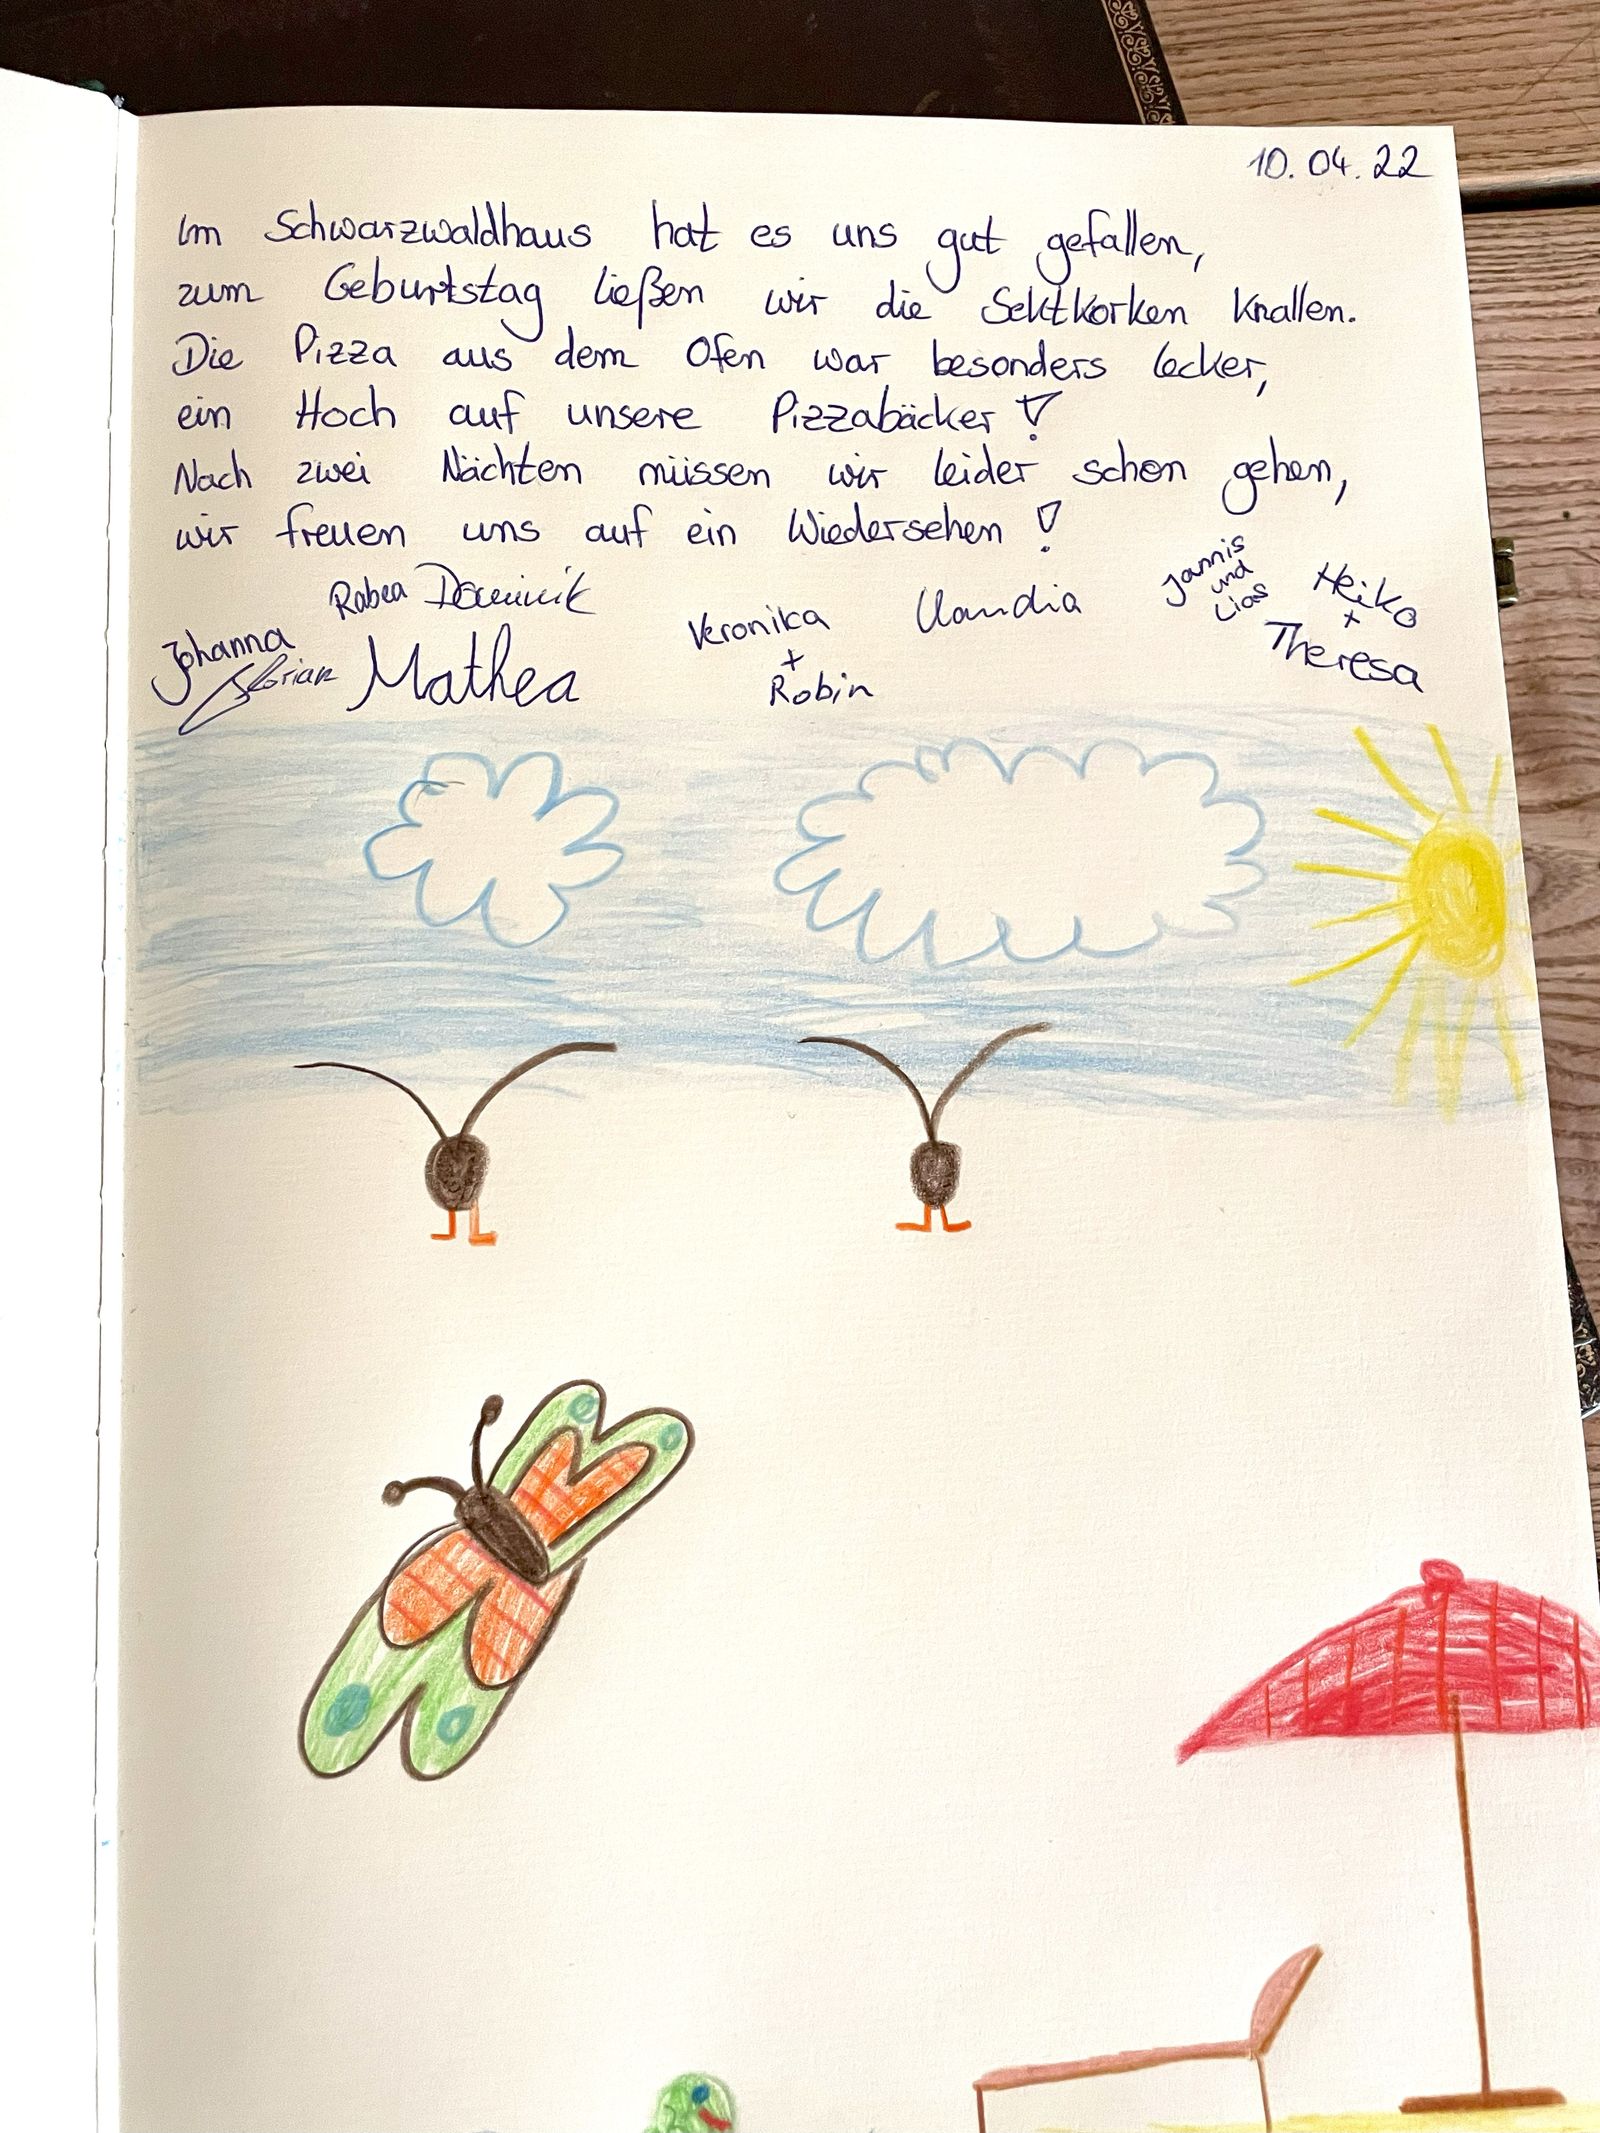 10.04.22
Im Schwarzwaldhaus hat es uns gut gefallen,
zum Geburtstag ließen wir die Sektkorken knallen.
Die Pizza aus dem Ofen war besonders lecker,
ein Hoch auf unsere Pizzabäcker!
Nach zwei Nächten müssen wir leider schon gehen,
wir freuen uns auf ein Wiedersehen!
Rabea Dominik
Johanna
Florian
Mathea
Veronika
+
Robin
Claudia
Jannis
und
Lias
Heiko
+
Theresa